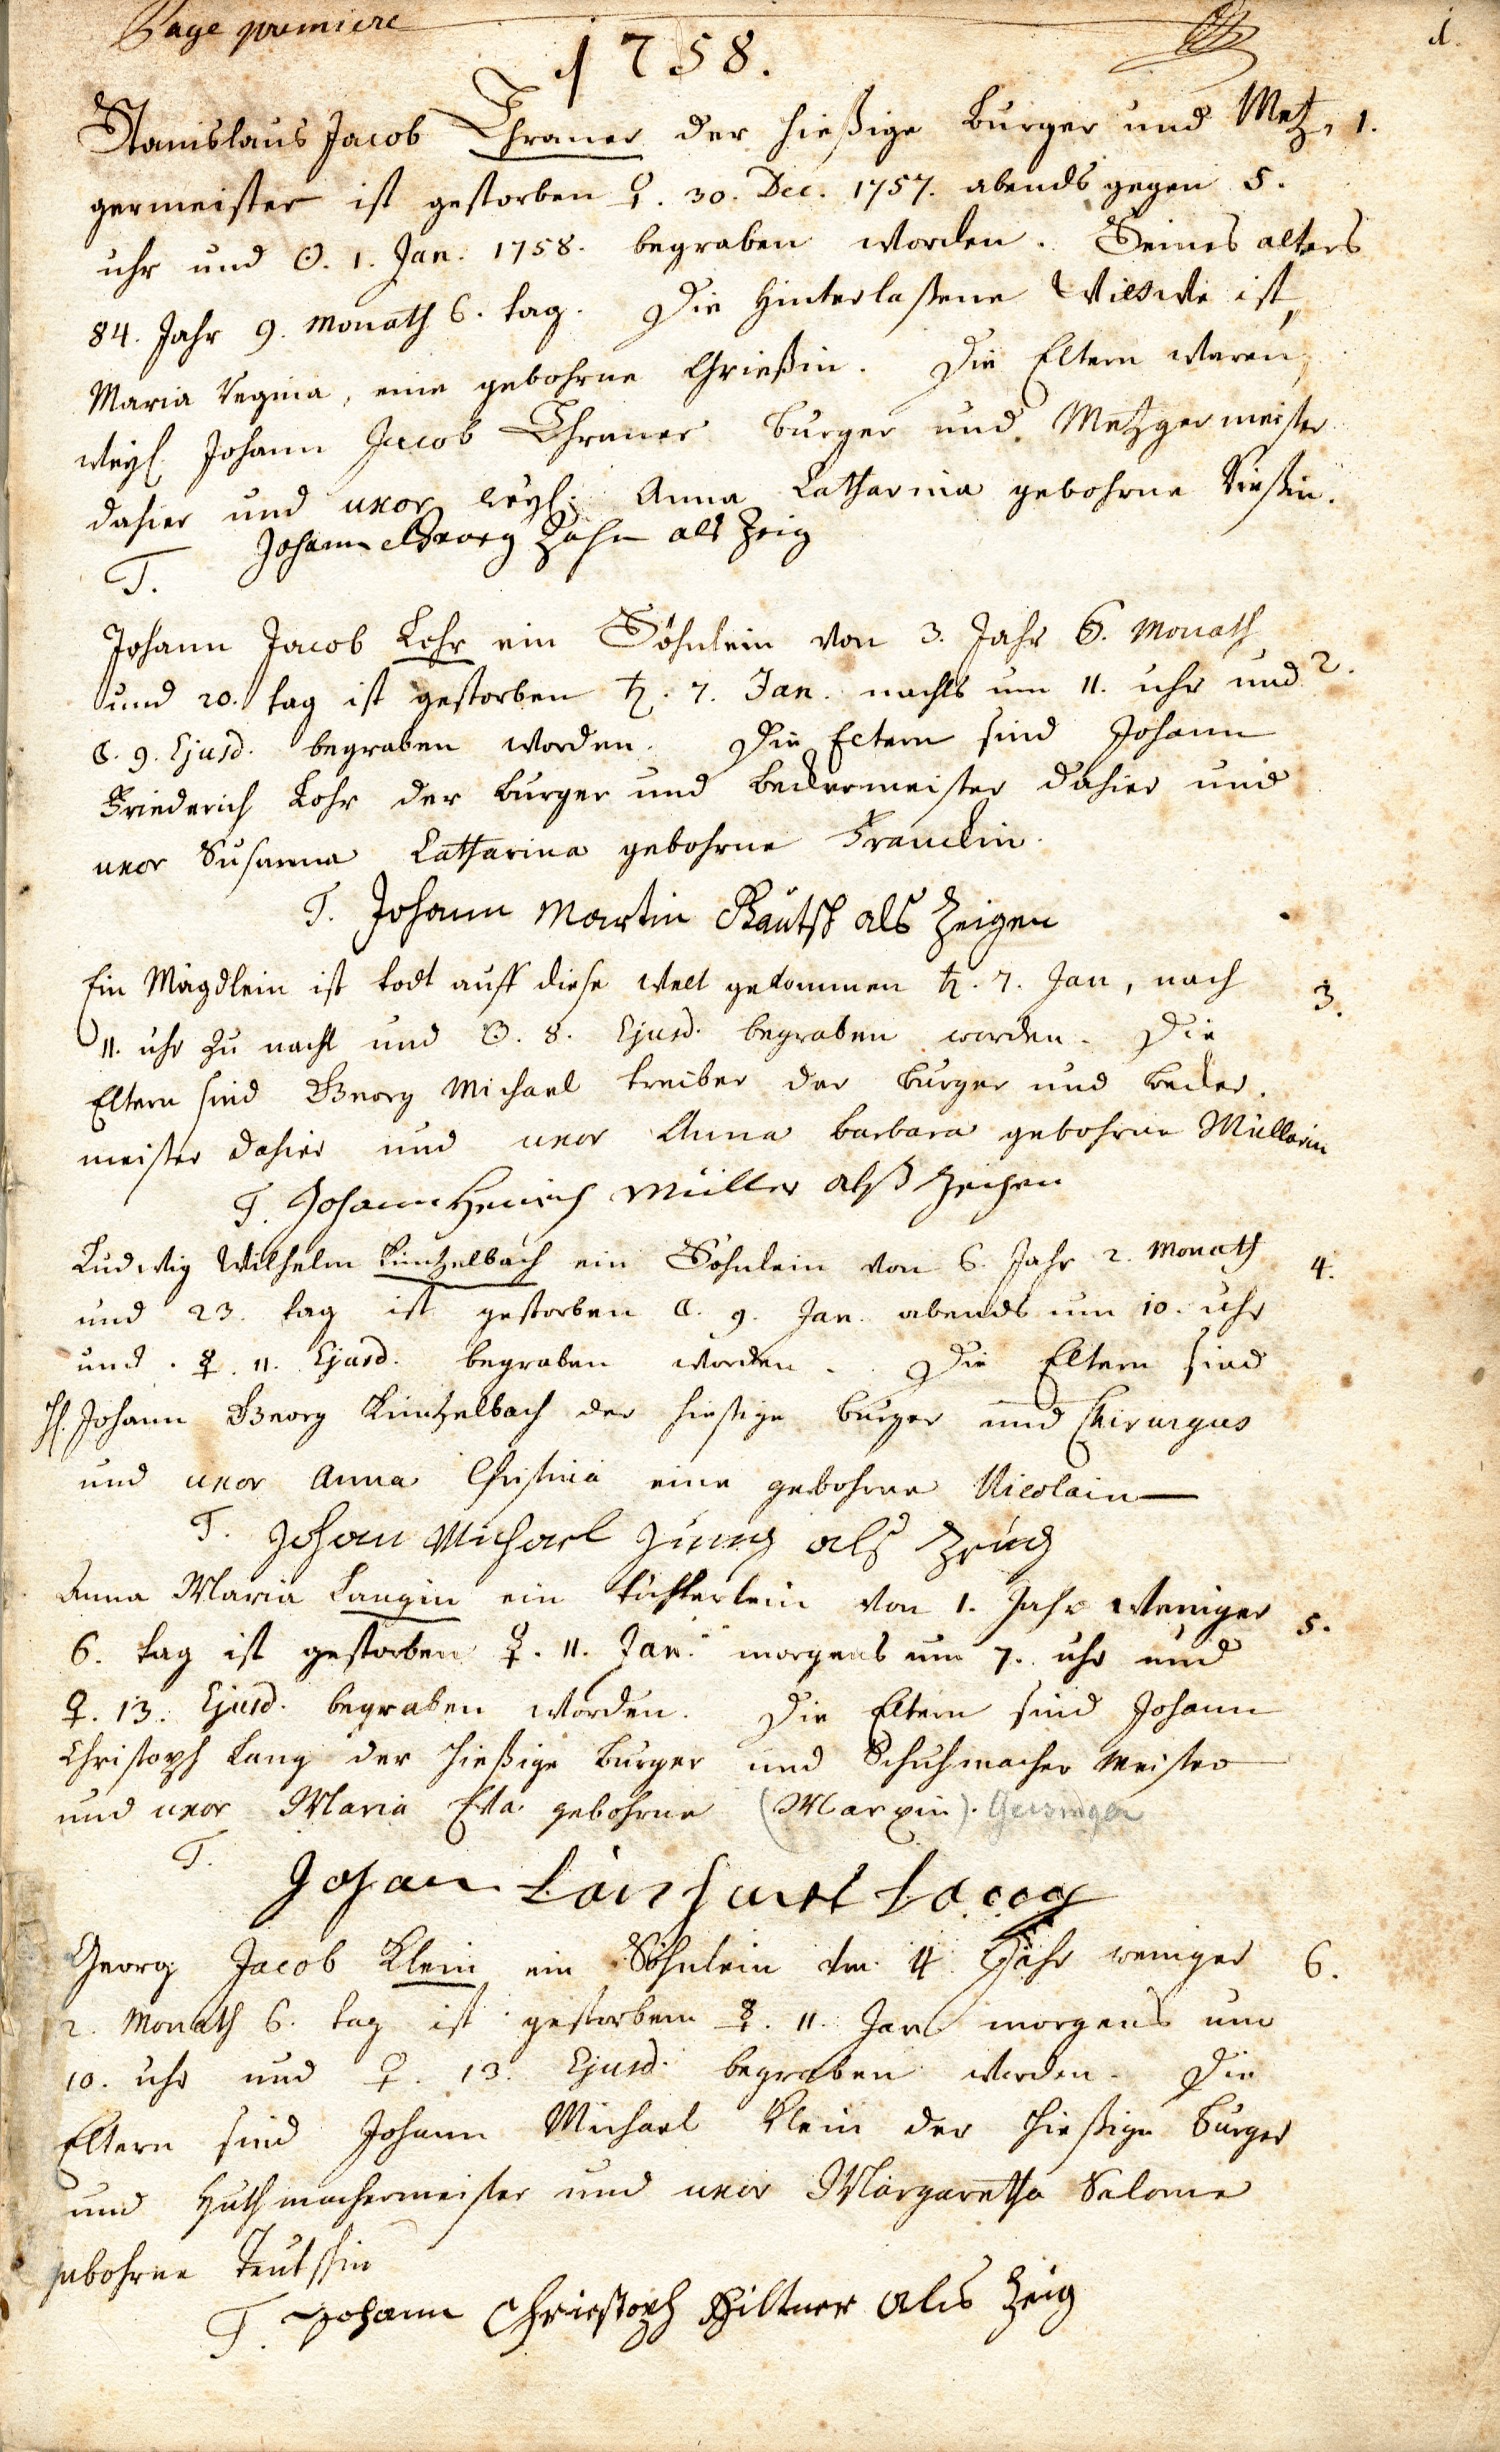 Page premiere
1.
1758.
Stanislaus Jacob Thraner der hießige burger und Metz- 1.
germeister ist gestorben ♀. 30. Dec. 1757. abends gegen 5.
uhr und ☉. 1. Jan. 1758. begraben worden. Seines alters
84. Jahr 9. Monath 6. tag. Die hinterlaßene Wittwe ist,
Maria Regina, eine gebohrne Grießin. Die Eltern waren,
weyl. Johann Jacob Thraner burger und Metzgermeister
dahier und uxor weyl. Anna Catharina gebohrne
Johann Georg Zahn als Zeig
T.
Johann Jacob Lohr ein Söhnlein von 3. Jahr 6. Monath
und 20. tag ist gestorben ♄. 7. Jan. nachts um 11. uhr und 2.
☾. 9. Ejusd. begraben worden. Die Eltern sind Johann
Friederich Lohr der burger und beckermeister dahier und
uxor Susanna Catharina gebohrne Franckin.
T. Johann Martin als Zeigen
Ein Mägdlein ist todt auff diese welt gekommen ♄. 7. Jan, nach 3.
11. uhr zu nacht und ☉. 8. Ejusd. begraben worden. Die
Eltern sind Georg Michael treiber der burger und becker-
meister dahier und uxor Anna barbara gebohrne Müllerin
T. Johann Henrich Müller alß Zeichen
Ludwig Wilhelm Küntzelbach ein Söhnlein von 6. Jahr 2. Monath 4.
und 23. tag ist gestorben ☾. 9. Jan. abends um 10. uhr
und ☿. 11. Ejusd. begraben worden. Die Eltern sind
H. Johann Georg Küntzelbach der hießige burger und Chirurgus
und uxor Anna Christina eine gebohrne Nicolain
T. Johan Michael Jung als Zeug
Anna Maria Langin ein töchterlein von 1. Jahr weniger 5.
6. tag ist gestorben ☿. 11. Jan. morgens um 7. uhr und
♀. 13. Ejusd. begraben worden. Die Eltern sind Johann
Christoph Lang der hießige burger und Schuhmacher meister
und uxor Maria Eva gebohrne (Marxin).
T.
Johan Lönhart Lang
Georg Jacob Klein ein Söhnlein von 4. Jahr weniger 6.
2. Monath 6. tag ist gestorben ☿. 11. Jan. morgens um
10. uhr und ♀. 13. Ejusd. begraben worden. Die
Eltern sind Johann Michael Klein der hießige burger
und Huthmachermeister und uxor Margaretha Salome
gebohrne Teutschin
T. Johann Christoph Hiltner als Zeig